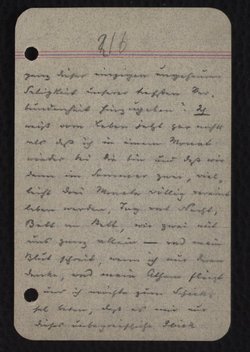 2/6
ganz dieser einzigen ungeheuren
Seligkeit unserer tiefsten Ver-
bundenheit hinzugeben! Ich
weiß vom Leben jetzt gar nichts
als daß ich in einem Monat
wieder bei Dir bin und daß wir
dann im Sommer zwei, viel-
leicht drei Monate völlig vereint
leben werden, Tag und Nacht,
Bett an Bett, wir zwei mit
uns ganz allein — und mein
Blut schreit, wenn ich nur daran
denke, und mein Athem fliegt
und ich möchte zum Schick-
sal beten, daß es mir nur
dieses unbegreifliche Glück